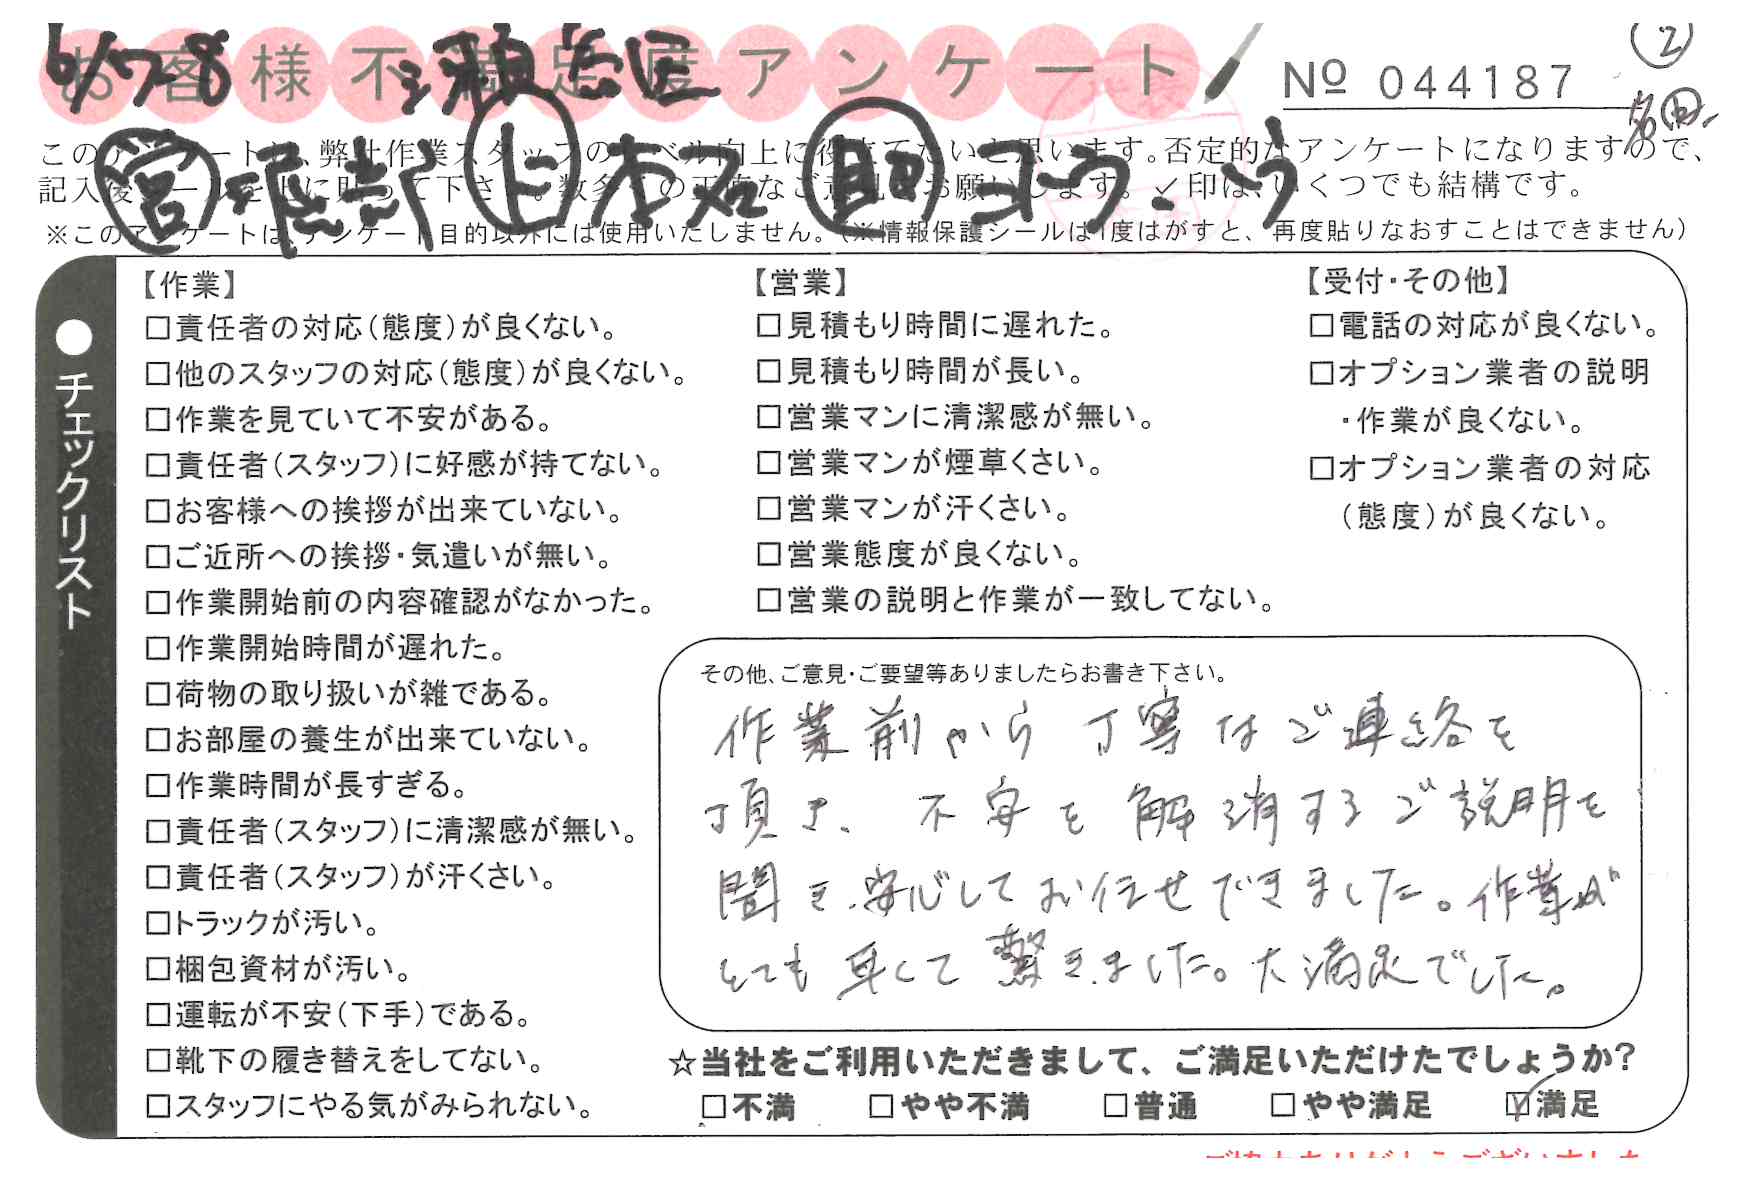 お客様不満足度アンケート
№ 044187
②
6/28
このアンケートは、弊社作業スタッフのレベル向上に役立てたいと思います。否定的なアンケートになりますので、
記入後シールを上に貼って下さい。数多くの正直なご意見をお願いします。✓印は、いくつでも結構です。
※このアンケートは、アンケート目的以外には使用いたしません。（※情報保護シールは1度はがすと、再度貼りなおすことはできません）
●チェックリスト
【作業】
□責任者の対応（態度）が良くない。
□他のスタッフの対応（態度）が良くない。
□作業を見ていて不安がある。
□責任者（スタッフ）に好感が持てない。
□お客様への挨拶が出来ていない。
□ご近所への挨拶・気遣いが無い。
□作業開始前の内容確認がなかった。
□作業開始時間が遅れた。
□荷物の取り扱いが雑である。
□お部屋の養生が出来ていない。
□作業時間が長すぎる。
□責任者（スタッフ）に清潔感が無い。
□責任者（スタッフ）が汗くさい。
□トラックが汚い。
□梱包資材が汚い。
□運転が不安（下手）である。
□靴下の履き替えをしてない。
□スタッフにやる気がみられない。
【営業】
□見積もり時間に遅れた。
□見積もり時間が長い。
□営業マンに清潔感が無い。
□営業マンが煙草くさい。
□営業マンが汗くさい。
□営業態度が良くない。
□営業の説明と作業が一致してない。
【受付・その他】
□電話の対応が良くない。
□オプション業者の説明
・作業が良くない。
□オプション業者の対応
（態度）が良くない。
その他、ご意見・ご要望等ありましたらお書き下さい。
作業前から丁寧なご連絡を
頂き、不安を解消するご説明を
聞き、安心してお任せできました。作業が
とても早くて驚きました。大満足でした。
☆当社をご利用いただきまして、ご満足いただけたでしょうか?
□不満 □やや不満 □普通 □やや満足 ☑満足
ご協力ありがとうございました